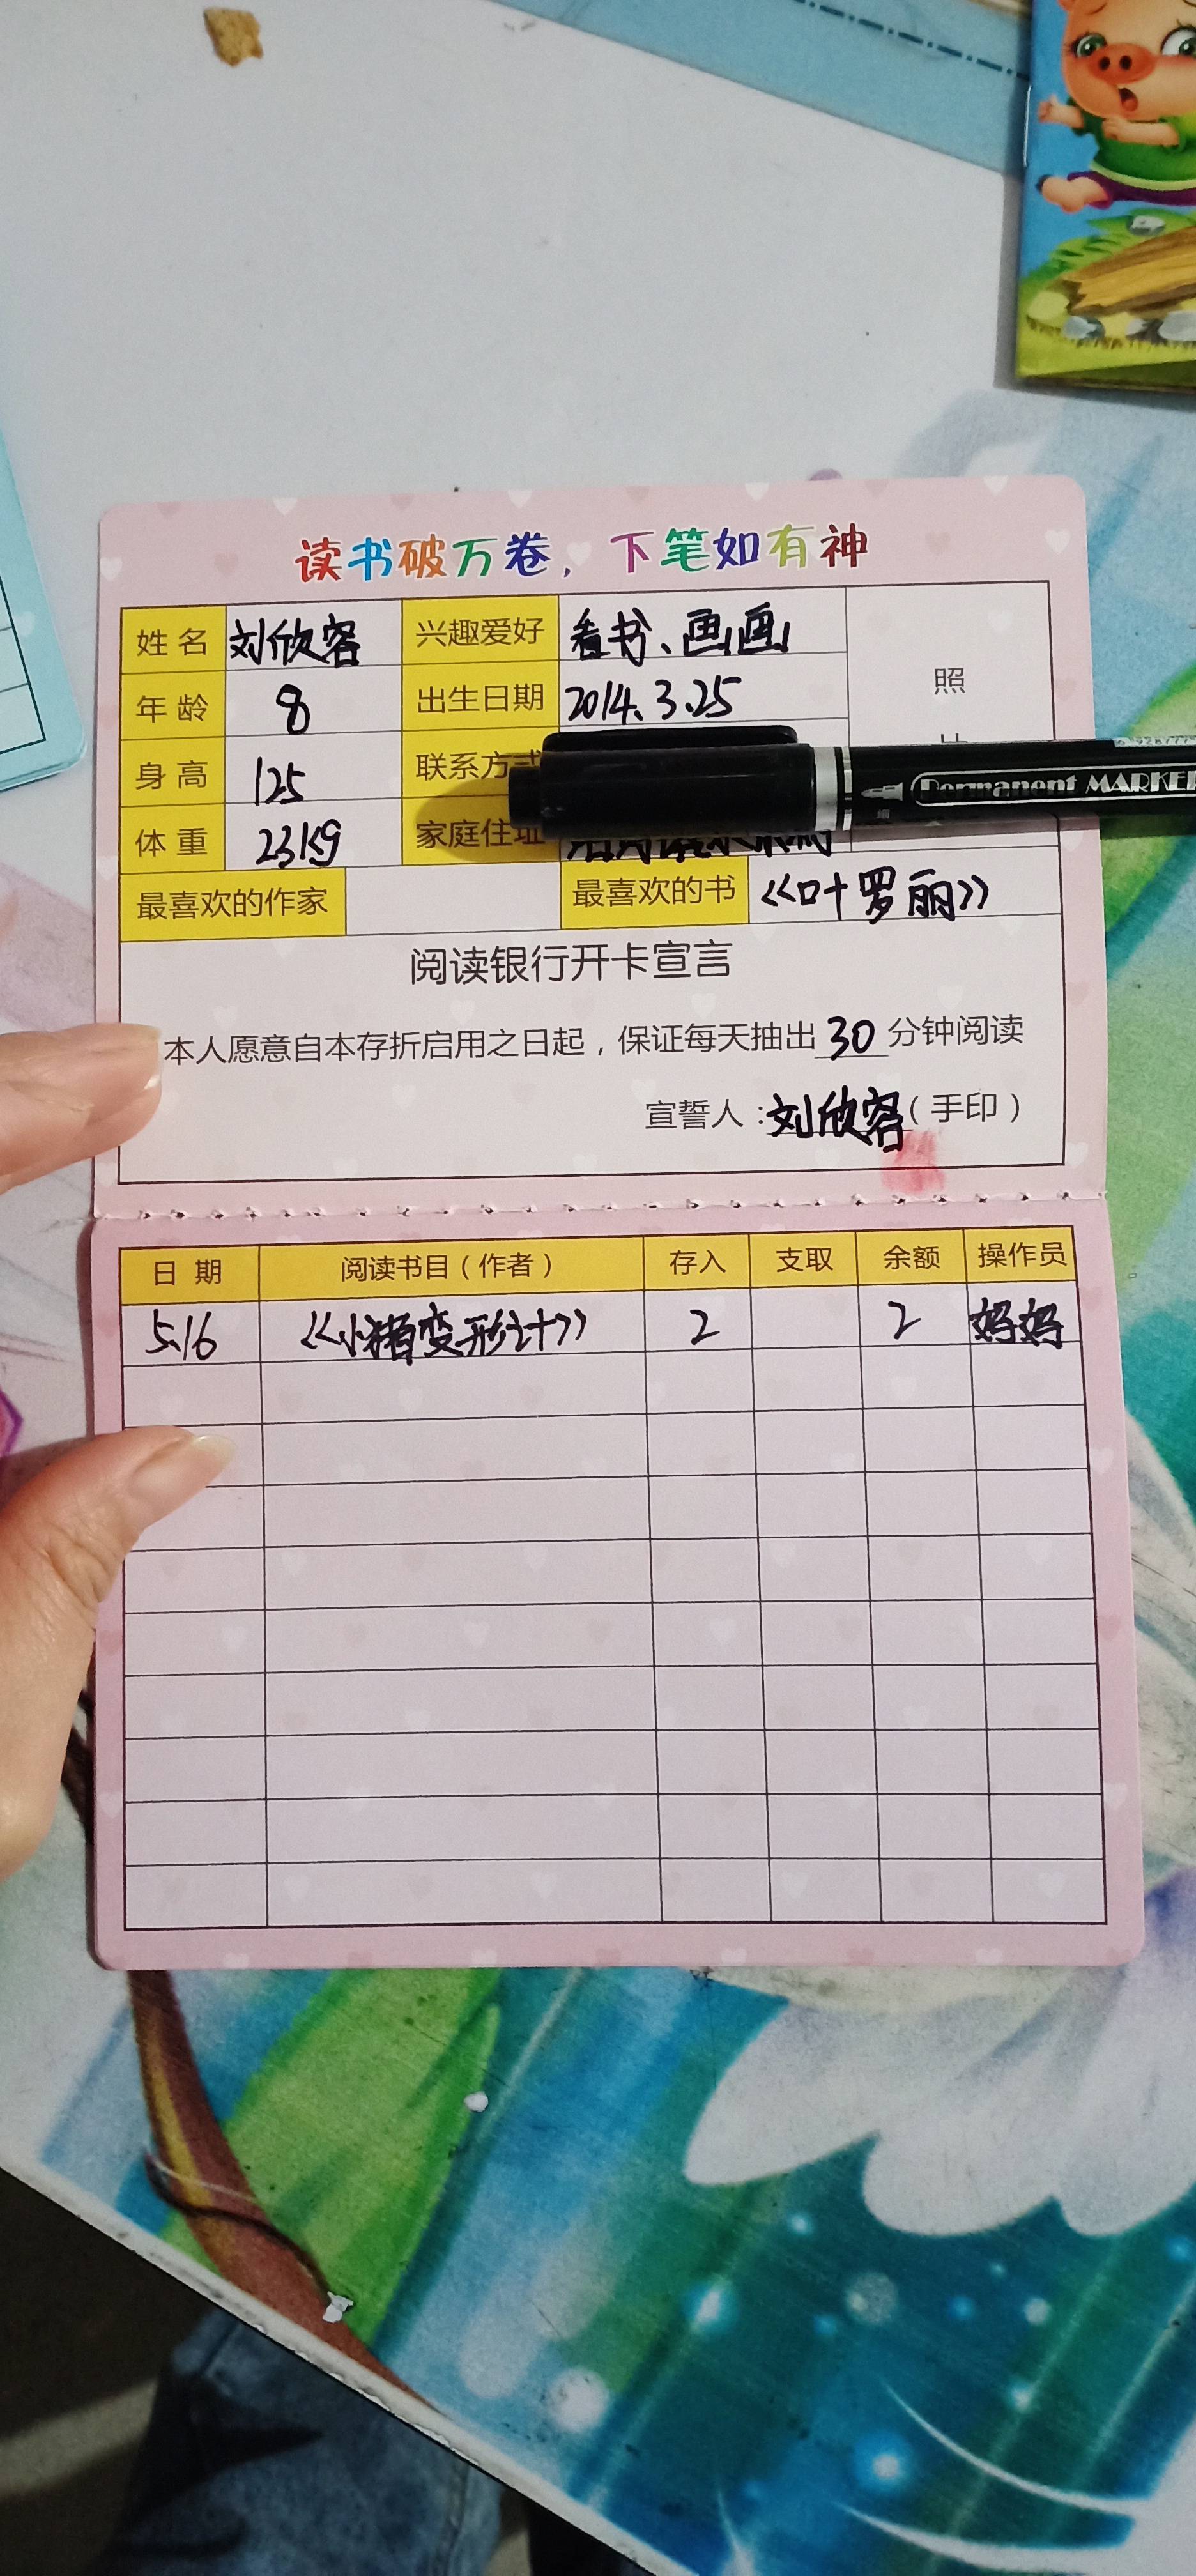 读书破万卷，下笔如有神
姓名 刘欣容 兴趣爱好 看书、画画
照
年龄 8 出生日期 2014.3.25
身高 125 联系方式
Permanent MARKER
体重 23kg 家庭住址
最喜欢的作家 最喜欢的书 《叶罗丽》
阅读银行开卡宣言
本人愿意自本存折启用之日起，保证每天抽出30分钟阅读
宣誓人：刘欣容（手印）
日期 阅读书目（作者） 存入 支取 余额 操作员
5.16 《小猪变形计》 2 2 妈妈